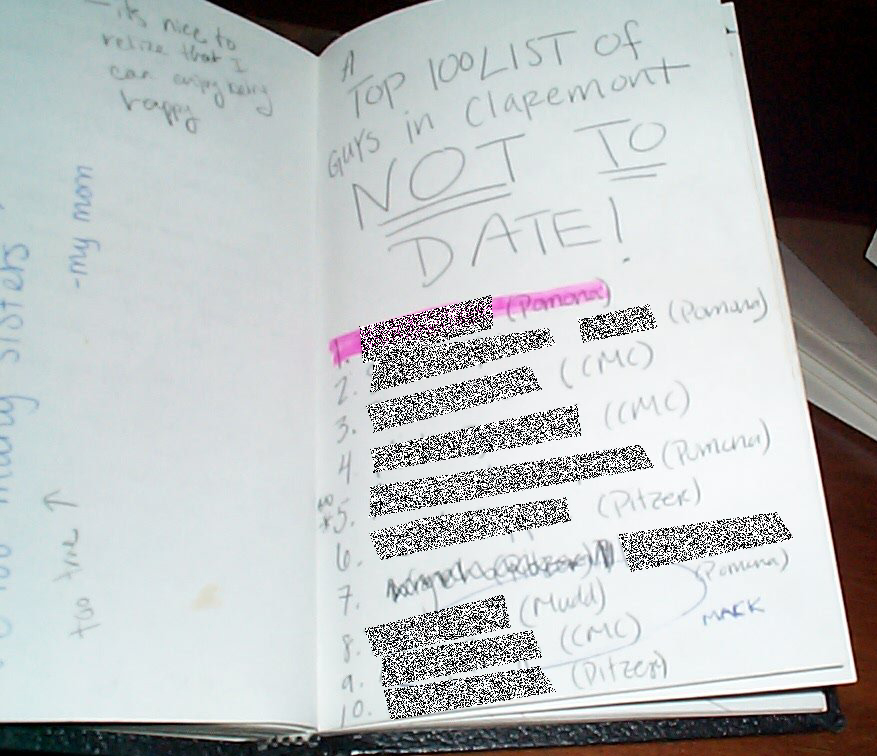 - its nice to
relize that I
can enjoy being
happy
-my mom
too many sisters
too true ↑
A
TOP 100 LIST of
GUYS in Claremont
NOT TO
DATE!
1. (Pomona)
2. (Pomona)
3. (CMC)
4. (CMC)
5. (Pomona)
6. (Pitzer)
7. (Pomona)
MACK
8. (Mudd)
9. (CMC)
10. (Pitzer)